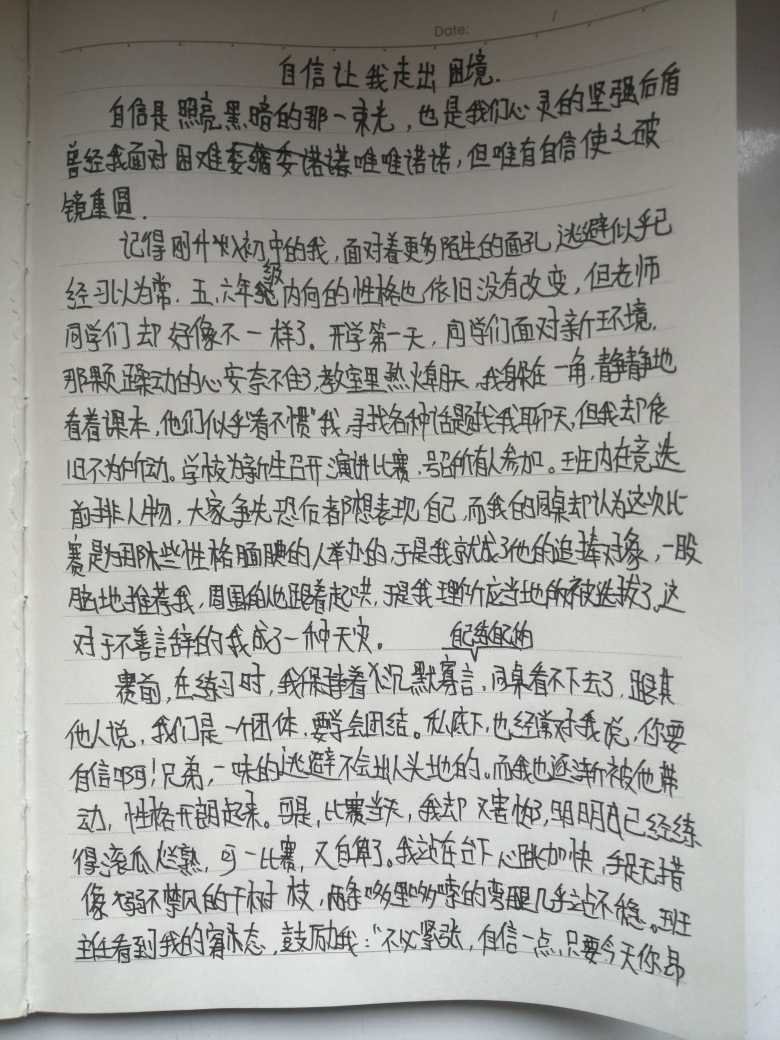 Date: /
自信让我走出困境.
自信是照亮黑暗的那一束光，也是我们心灵的坚强后盾
曾经我面对困难委缩委诺诺唯唯诺诺，但唯有自信使之破
镜重圆.
记得刚升 初中的我，面对着更多陌生的面孔,逃避似乎已
级
经习以为常.五、六年 内向的性格也依旧没有改变，但老师
同学们却好像不一样了。开学第一天，同学们面对新环境.
那颗躁动的心安奈不住了,教室里热火朝天,我躲在一角,静静地
看着课本，他们似乎"看不惯"我,寻找各种话题找我聊天,但我却依
旧不为所动。学校为新生召开演讲比赛,号召所有人参加。班内在竞选
前排人物，大家争先恐后都想表现自己,而我的同桌却认为这次比
赛是为那些性格腼腆的人举办的,于是我就成了他的追捧对象，一股
脑地推荐我,周围的人也跟着起哄,于是我理所应当地 被选拔了。这
对于不善言辞的我成了一种天灾。
赛前,在练习时,我保持着 沉默寡言,同桌看不下去了,跟其
他人说，我们是一个团体,要学会团结。私底下,也经常对我说，你要
自信啊!兄弟,一味的逃避不会出人头地的。而我也逐渐被他带
动，性格开朗起来。可是,比赛当天，我却又害怕了,明明自己经练
得滚瓜烂熟，可一比赛，又自卑了。我站在台下心跳加快，手足无措
像 弱不禁风的干树枝，两条哆哩哆嗦的弯腿几乎站不稳。班
主任看到我的窘状态,鼓励我："不必紧张，自信一点,只要今天你昂